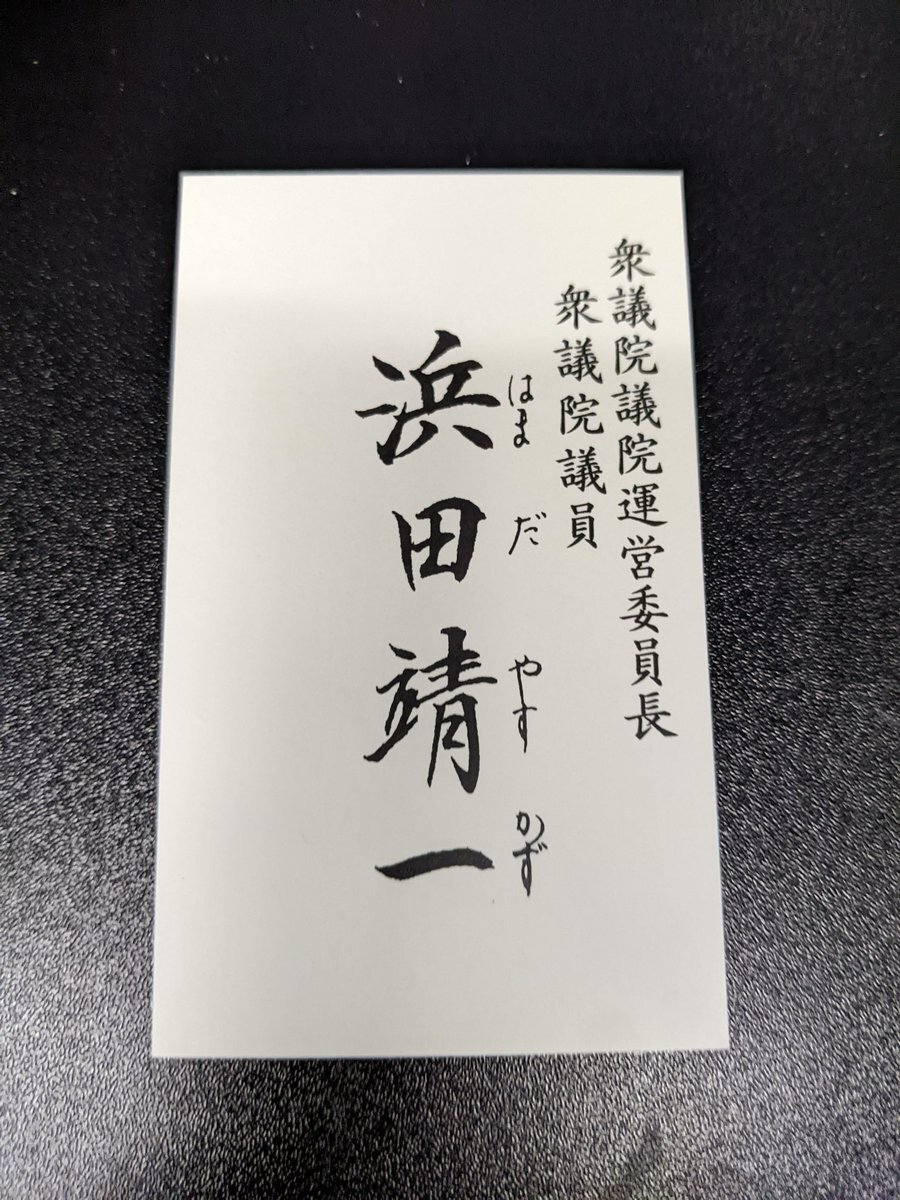 衆議院議院運営委員長
衆議院議員
はまだやすかず
浜田靖一